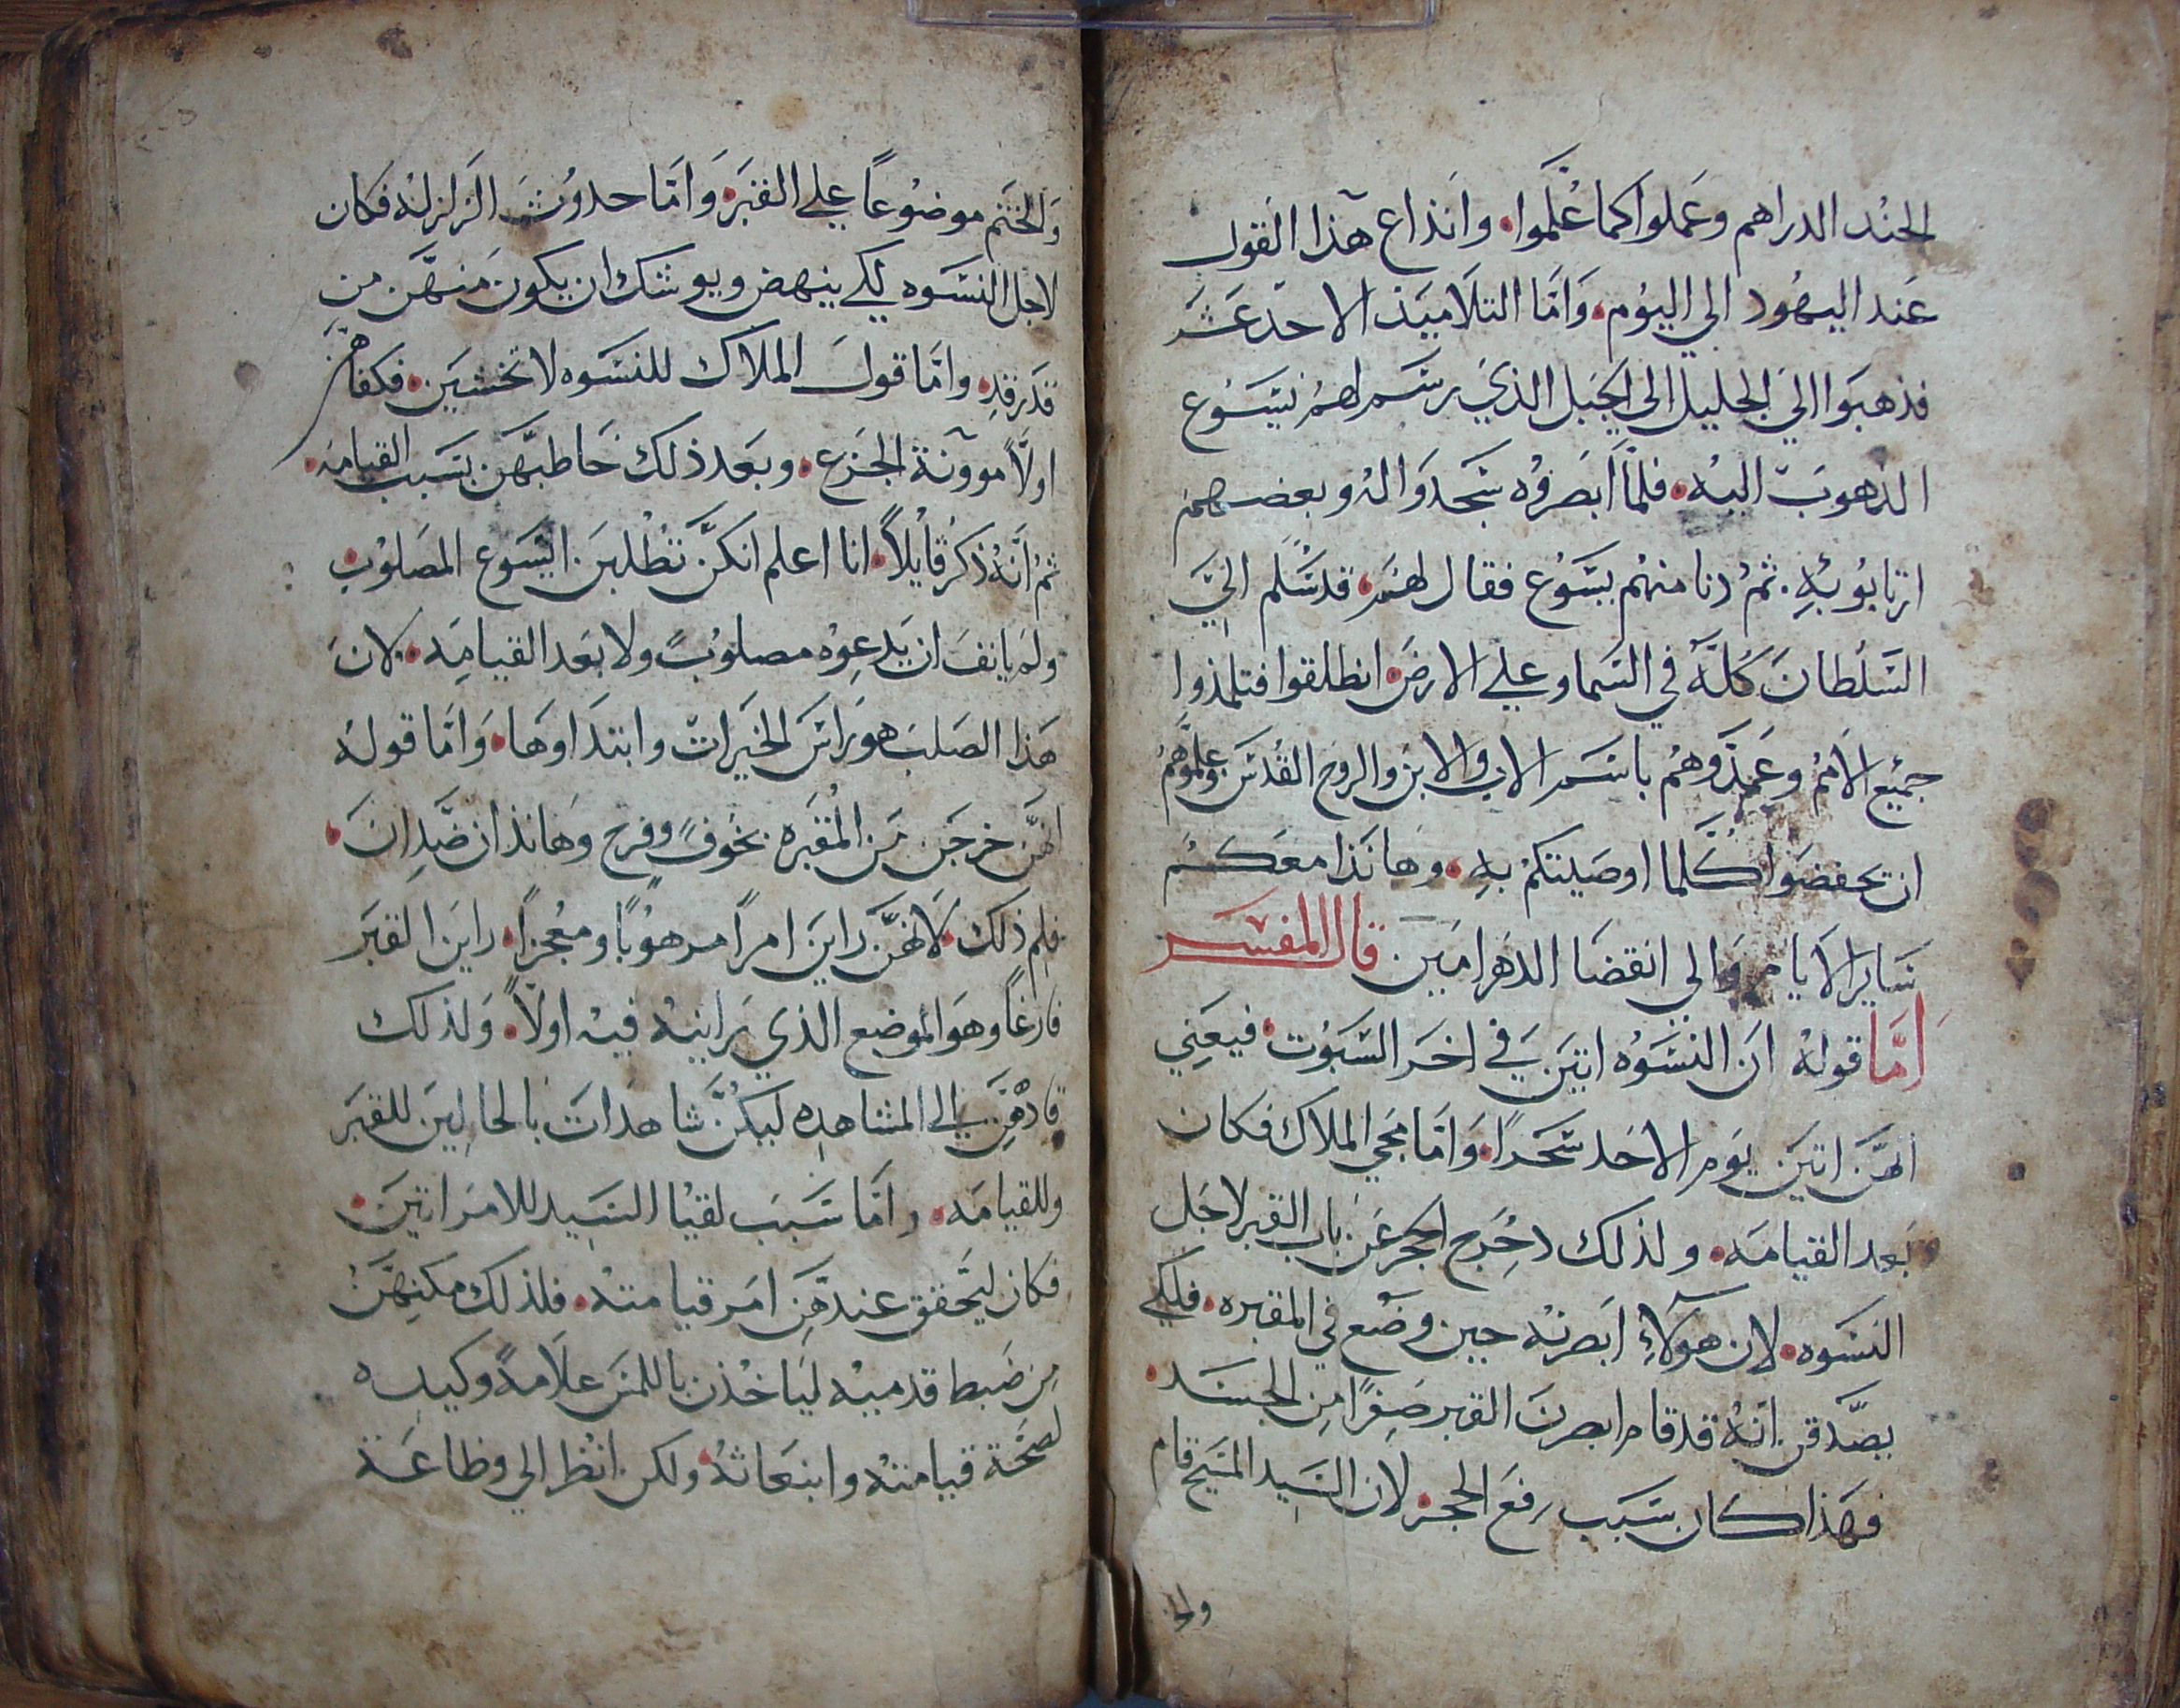 الجند الدراهم وعملوا كما عُلّموا، وانذاع هذا القول
عند اليهود الي اليوم، وَامّا التلاميذ الاحد عشر
فذهبوا الي الجليل الي الجبل الذي رسم لهم يسوع
الذهوب اليه، فلمّا ابصروُه سجدوا له وبعضهم
ارتابوُ بهِ. ثمُ دنا منهُم يسوُع فقال لهم، قد سُلّم اليَّ
السَلطانَ كلهُ في السَما وعلي الارض، انطلقوا فتلمذوا
جميع الامُم وعَمِدَوهُم باسم الاب والابن والروح القُدسَ وعلّموهُم
ان يحفضوا كلّما اوصَيتكمُ بهِ، وهانذا معكم
سَاير الايام وَالي انقضَا الدَهر امَين قال المفسَر
امَّا قولهُ انَ النسَوُه اتينَ في اخر السَبَوُت، فيعَني
انهّن اتينَ يوَم الاحَد سَحَرًا، وَامَا مَجي الملاك فكان
بَعد القيامَه، ولذلك دُحِرج الحجر عَن باب القبر لاجَل
النسَوه، لان هوَلآءِ ابَصرنهُ حين وضُع في المقبره، فلكي
يصَّدقن انهُ قد قام ابصرنَ القبر صِفرًا مِن الجسَد،
فهَذا كان سَبَب رفعَ الحجر، لان السَيد المسَيح قام
ولخ
وَالختَم موضوُعاً علي القبَر، وَامّا حدوُث الزلزلهُ فكان
لاجل النسَوه لكي ينهض ويوشك ان يكونَ منهّن من
قدَ رقدِ، وامّا قولَ الملاك للنسَوه لا تخشيَن، فكفاهّن
اولًا موونَة الجزع، وبعَد ذلك خَاطبهّن بسَبب القيامَه،
ثمُ انّهُ ذكرُ قايلاً، انا اعلم انكنَّ تطْلبنَ ايسَوع المصَلوُب
ولم يانفَ ان يَدعوهُ مصلوُبً ولا بعَد القيامِه، لانَ
هَذا الصَلبَ هوَ راسَ الخيَراتَ وابتدَاوهَا، وَامّا قولهُ
انهّن خرجَن مَن المُقبَره بخَوفً وفرح وهَاذان ضَّدِانَ،
فلم ذلك، لانهنّ راينَ امراً مرهوُبًا ومعُجزاً، راينَ القبَر
فارغًا وهوَ الموضع الذي رَاينهُ فيه اولاً، وَلذلك
قادهْنِّ الي المشاهدِه ليكنَّ شاهدَاتَ بالحاليَن للقبَر
وللقيامَه، وامّا سَببَ لقيْا السَيد للامَراتينَ،
فكان ليَتحقق عندهّن امَر قيامتهُ، فلذلك مكنهَّن
مِن ضَبط قدميهْ ليَاخذن باللمسَ علَامهً وكيده
لصحّة قيامتهُ وانبعَاثهُ، ولكن انظر الي وظاعَة